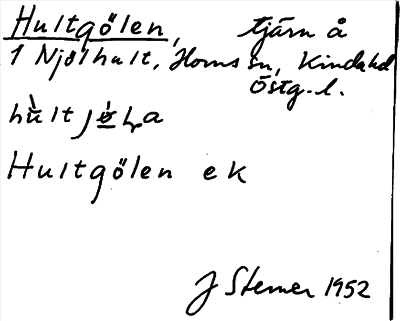 Hultgölen, tjärn å
1 Njölhult, Horns sn, Kinda hd
Östg. l.
Hultgölen ek
J Stemer 1952